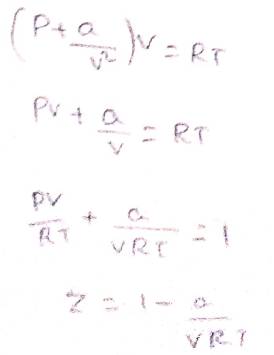 (P + a/v²)V = RT
PV + a/V = RT
PV/RT + a/VRT = 1
Z = 1 - a/VRT